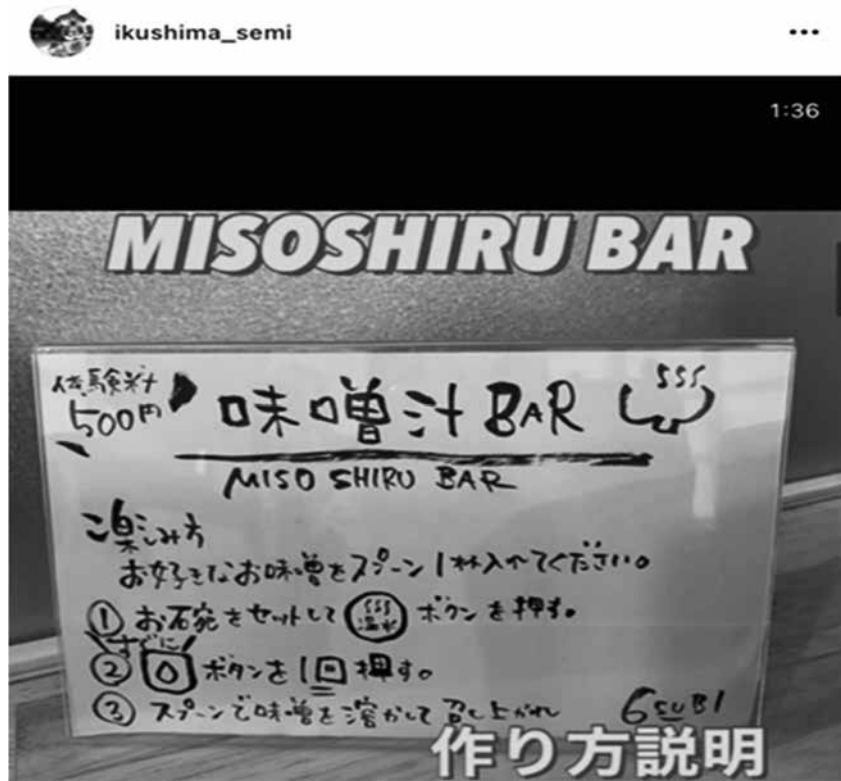 ikushima_semi
1:36
MISOSHIRU BAR
体験料
500円
味噌汁 BAR
MISO SHIRU BAR
ご楽しみ方
お好きなお味噌をスプーン1杯入れてください。
① お碗をセットして 温水 ボタンを押す。
すぐに
② ボタンを1回押す。
③ スプーンで味噌を溶かして召し上がれ
6SUBI
作り方説明